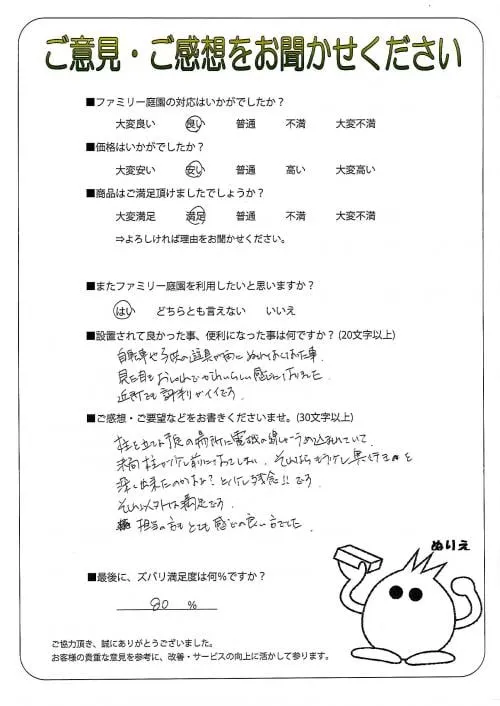 ご意見・ご感想をお聞かせください
■ファミリー庭園の対応はいかがでしたか？
大変良い 良い 普通 不満 大変不満
■価格はいかがでしたか？
大変安い 安い 普通 高い 大変高い
■商品はご満足頂けましたでしょうか？
大変満足 満足 普通 不満 大変不満
⇒よろしければ理由をお聞かせください。
■またファミリー庭園を利用したいと思いますか？
はい どちらとも言えない いいえ
■設置されて良かった事、便利になった事は何ですか？(20文字以上)
自転車や子供の道具が雨にぬれなくなった事。
見た目もおしゃれでかわいらしい感じになりました
近所でも評判がイイです
■ご感想・ご要望などをお書きくださいませ。(30文字以上)
柱を立てる予定の場所に電線の線がうめ込まれていて、
結局柱が少し前になってしまい、それならもう少し奥行きを
深く出来たのかなぁ？と少し残念!!です
それ以外は満足です
担当の方もとても感じの良い方でした
ぬりえ
■最後に、ズバリ満足度は何％ですか？
80 %
ご協力頂き、誠にありがとうございました。
お客様の貴重な意見を参考に、改善・サービスの向上に活かして参ります。